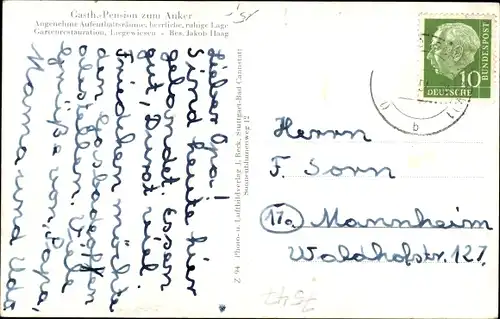 Gasth.-Pension zum Anker
Angenehme Aufenthaltsräume, herrliche, ruhige Lage
Gartenrestauration, Liegewiesen - Bes. Jakob Haag
Lieber Opa!
Sind heute hier
gelandet. Essen
gut, Durst viel.
Friedchen möchte
den Gasbadeofen
abstellen. Viele
Grüße von Papa,
Mama und Udo
Z 94 Photo- u. Luftbildverlag J. Beck, Stuttgart-Bad Cannstatt
Sonnentauweg 12
10
DEUTSCHE
BUNDESPOST
b
Herrn
F. Sorn
17a Mannheim
Waldhofstr. 127.
7547